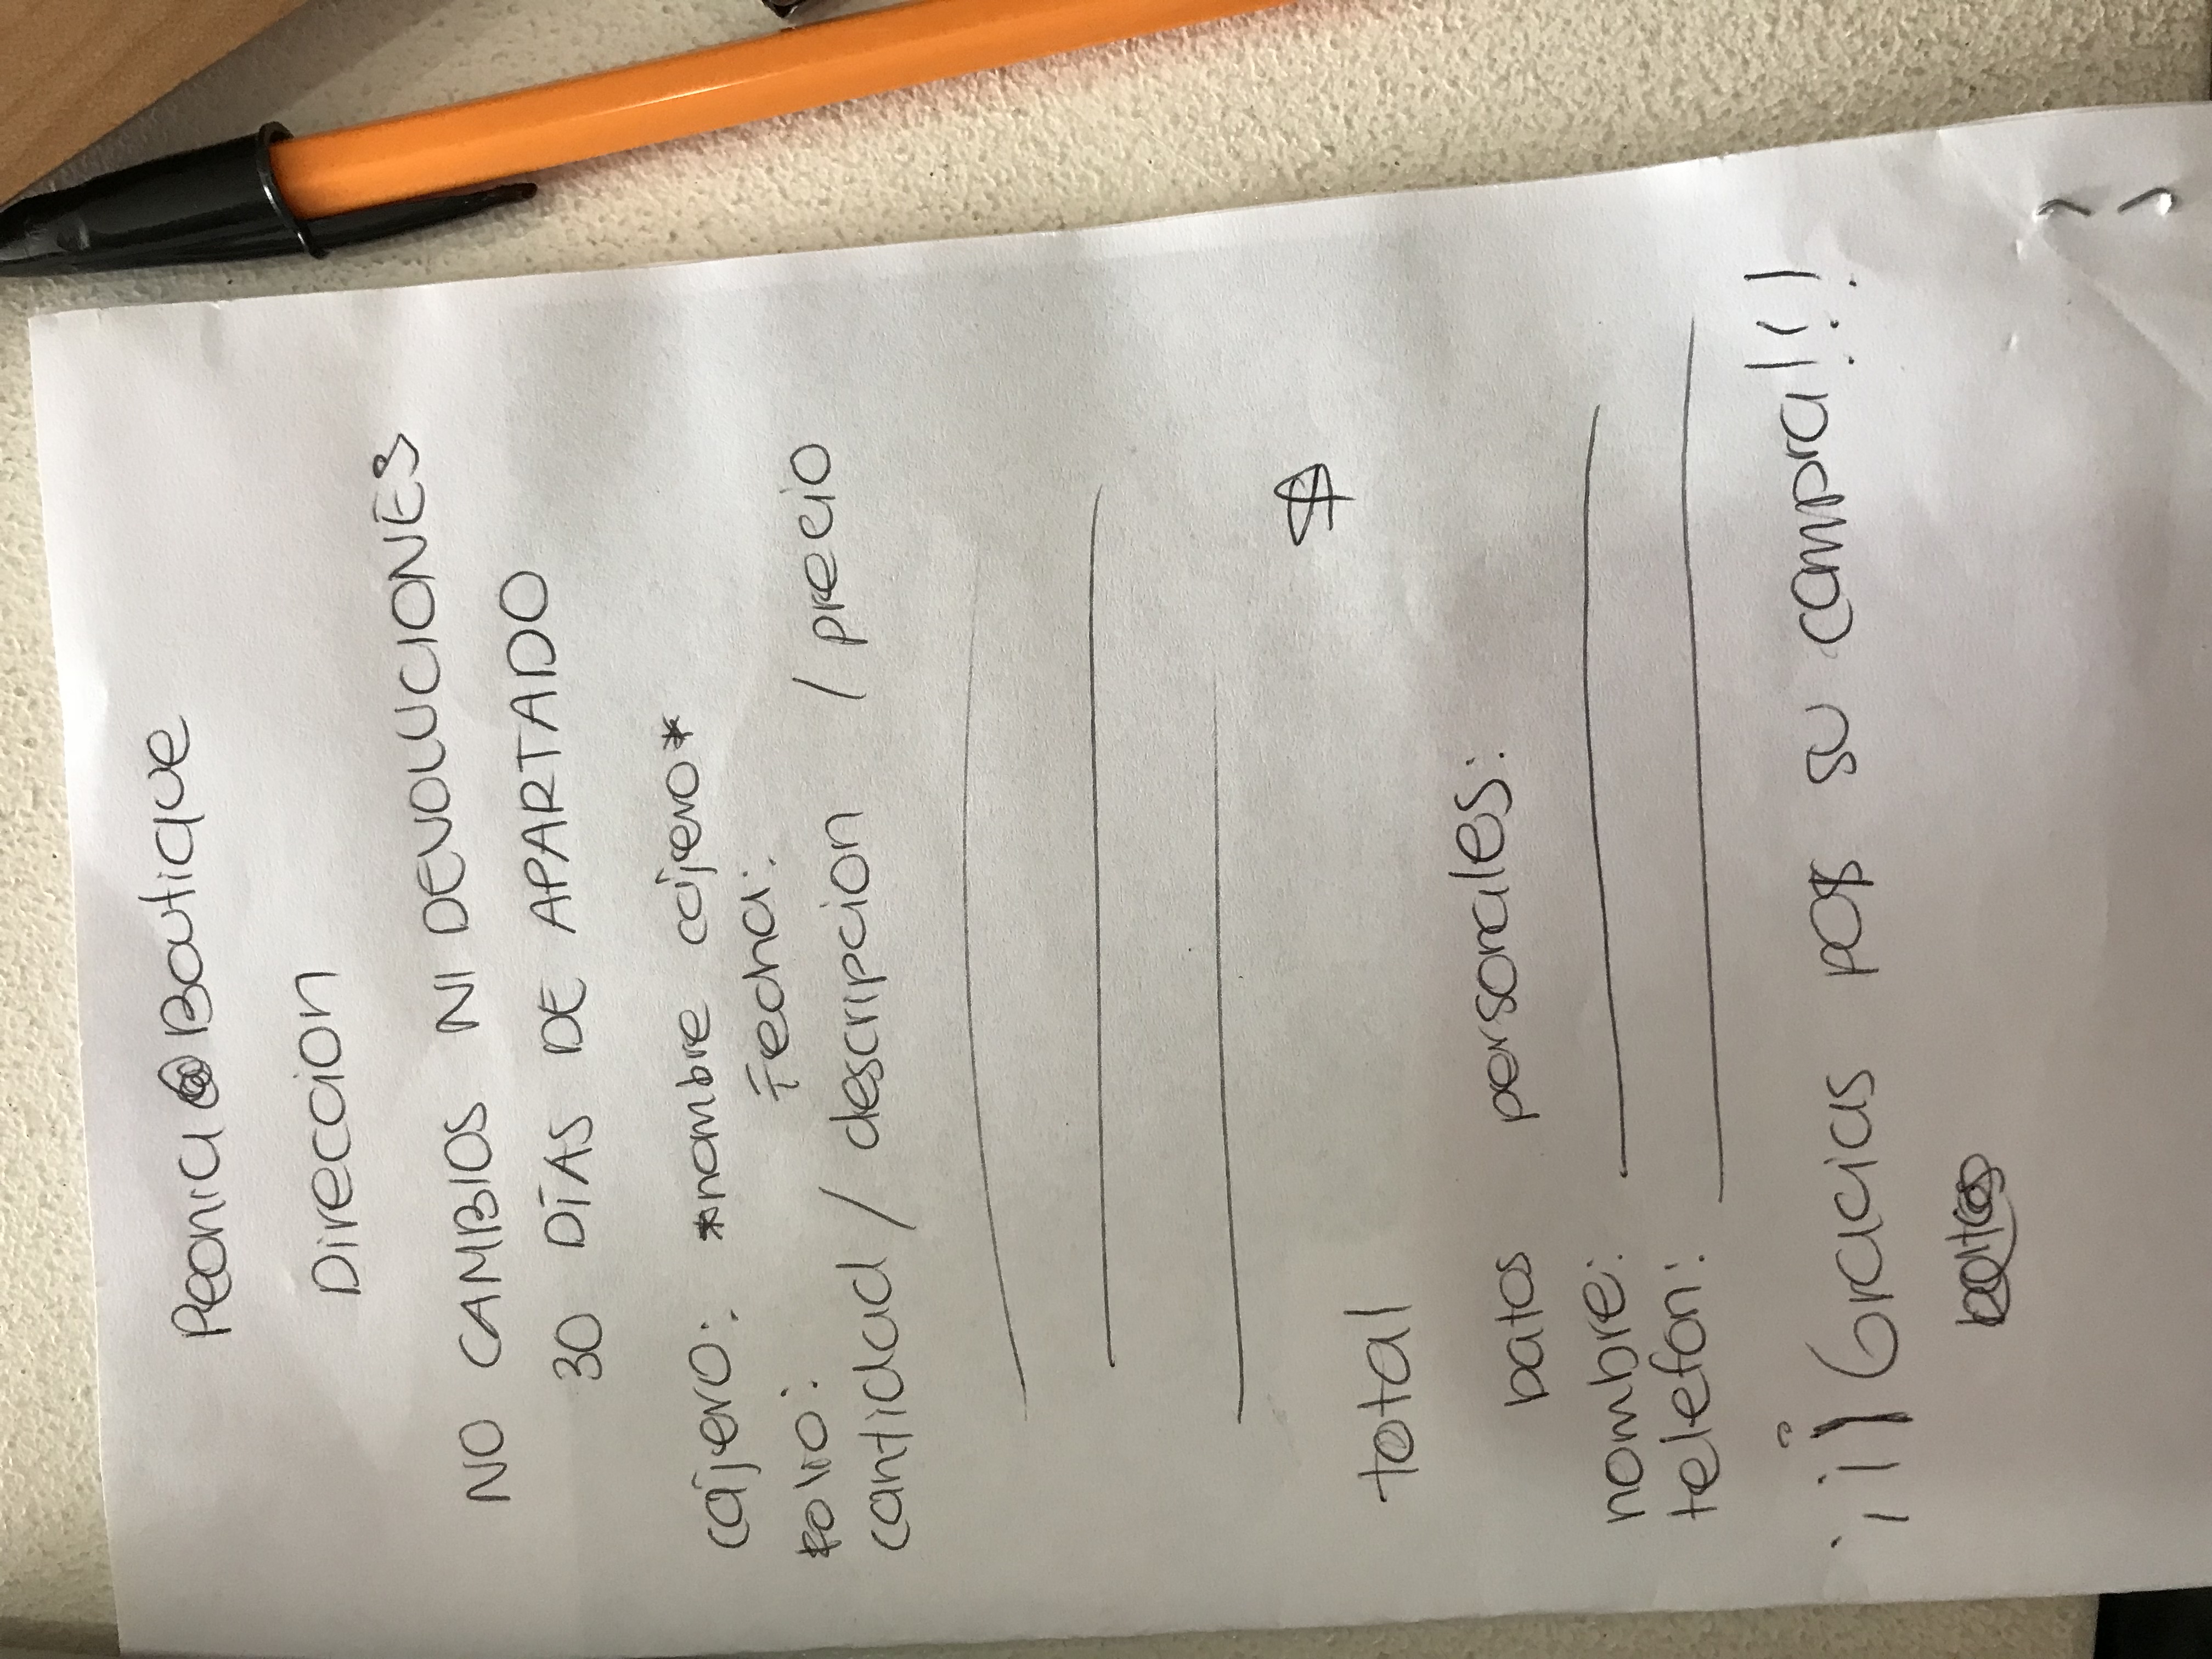 Peonia Boutique
Direccion
NO CAMBIOS NI DEVOLUCIONES
30 DÍAS DE APARTADO
cajero: *nombre cajero*
Fecha:
Folio:
cantidad / descripcion / precio
$
total
Datos personales:
nombre:
telefon:
¡¡¡Gracias por su compra!!!